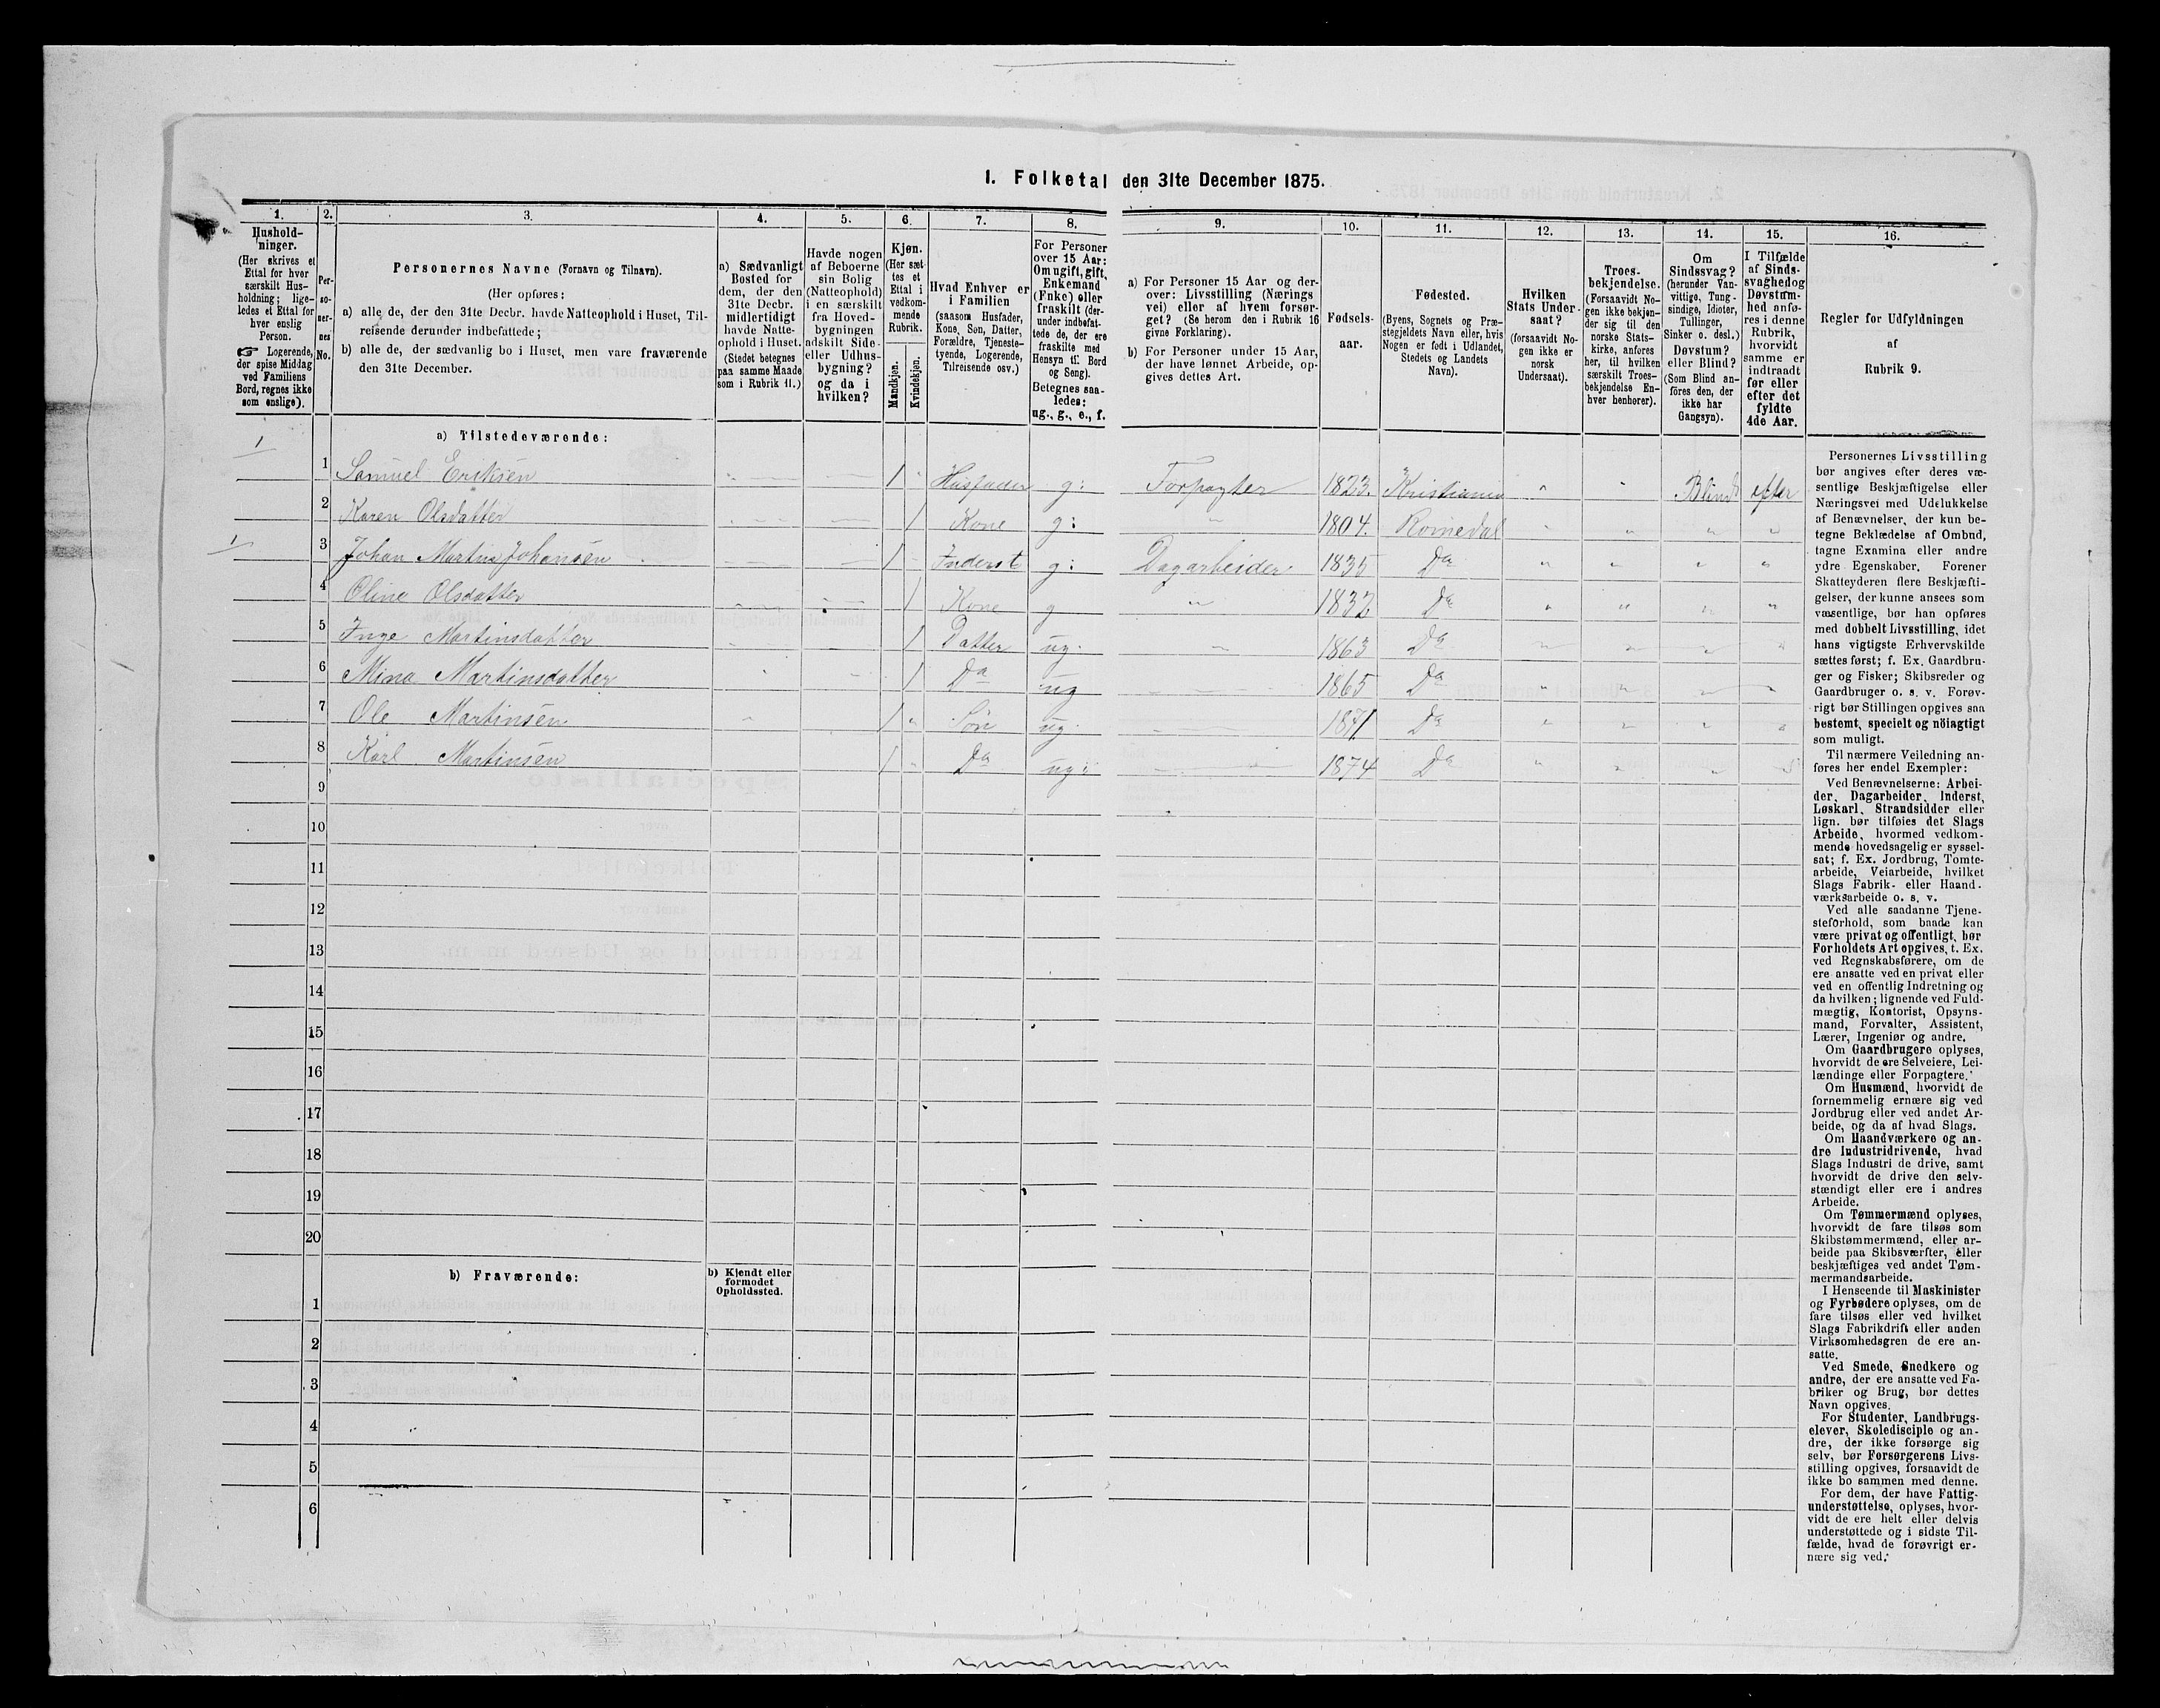 1. Folketal den 31te December 1875.
1. 2. 3. 4. 5. 6. 7. 8. 9. 10. 11. 12. 13. 14. 15. 16.
Hushold-
ninger.
(Her skrives et
Ettal for hver
særskilt Hus-
holdning; lige-
ledes et Ettal for
hver enslig
Person.
☞ Logerende,
der spise Middag
ved Familiens
Bord, regnes ikke
som enslige).
Per-
so-
ner-
nes
No.
Personernes Navne (Fornavn og Tilnavn).
(Her opføres:
a) alle de, der den 31te Decbr. havde Natteophold i Huset, Til-
reisende derunder indbefattede;
b) alle de, der sædvanlig bo i Huset, men vare fraværende
den 31te December.
a) Sædvanligt
Bosted for
dem, der den
31te Decbr.
midlertidigt
havde Natte-
ophold i Huset.
(Stedet betegnes
paa samme Maade
som i Rubrik 11.)
Havde nogen
af Beboerne
sin Bolig
(Natteophold)
i en særskilt
fra Hoved-
bygningen
adskilt Side-
eller Udhus-
bygning?
og da i
hvilken?
Kjøn.
(Her sæt-
tes et
Ettal i
vedkom-
mende
Rubrik.
Mandkjøn.
Kvindekjøn.
Hvad Enhver er
i Familien
(saasom Husfader,
Kone, Søn, Datter,
Forældre, Tjeneste-
tyende, Logerende,
Tilreisende osv.)
For Personer
over 15 Aar:
Om ugift, gift,
Enkemand
(Enke) eller
fraskilt (der-
under indbefat-
tede de, der ere
fraskilte med
Hensyn til Bord
og Seng).
Betegnes saa-
ledes:
ug., g., e., f.
a) For Personer 15 Aar og der-
over: Livsstilling (Nærings
vei) eller af hvem forsør-
get? (Se herom den i Rubrik 16
givne Forklaring).
b) For Personer under 15 Aar,
der have lønnet Arbeide, op-
gives dettes Art.
Fødsels-
aar.
Fødested.
(Byens, Sognets og Præ-
stegjeldets Navn eller, hvis
Nogen er født i Udlandet,
Stedets og Landets
Navn).
Hvilken
Stats Under-
saat?
(forsaavidt No-
gen ikke er
norsk
Undersaat).
Troes-
bekjendelse.
(Forsaavidt No-
gen ikke bekjen-
der sig til den
norske Stats-
kirke, anføres
her, til hvilken
særskilt Troes-
bekjendelse En-
hver henhører).
Om
Sindssvag?
(herunder Van-
vittige, Tung-
sindige, Idioter,
Tullinger,
Sinker o. desl.)
Døvstum?
eller Blind?
(Som Blind an-
føres den, der
ikke har
Gangsyn).
I Tilfælde
af Sinds-
svaghed og
Døvstum-
hed anfø-
res i denne
Rubrik,
hvorvidt
samme er
indtraadt
før eller
efter det
fyldte
4de Aar.
Regler for Udfyldningen
af
Rubrik 9.
a) Tilstedeværende:
1 1 Samuel Eriksen 1 Husfader g: Forpagter 1823. Kristiania Blind efter
2 Karen Olsdatter 1 Kone g: 1804. Romedal
1 3 Johan Martin Johansen 1 Inderst g: Dagarbeider 1835 Da
4 Oline Olsdatter 1 Kone g 1832 Da
5 Inge Martinsdatter 1 Datter ug. 1863 Da
6 Mina Martinsdatter 1 Da ug 1865 Da
7 Ole Martinsen 1 Søn ug. 1871 Da
8 Karl Martinsen 1 Da ug: 1874 Da
9
10
11
12
13
14
15
16
17
18
19
20
b) Fraværende: b) Kjendt eller
formodet
Opholdssted.
1
2
3
4
5
6
Personernes Livsstilling
bør angives efter deres væ-
sentlige Beskjæftigelse eller
Næringsvei med Udelukkelse
af Benævnelser, der kun be-
tegne Beklædelse af Ombud,
tagne Examina eller andre
ydre Egenskaber. Forener
Skatteyderen flere Beskjæfti-
gelser, der kunne ansees som
væsentlige, bør han opføres
med dobbelt Livsstilling, idet
hans vigtigste Erhvervskilde
sættes først; f. Ex. Gaardbru-
ger og Fisker; Skibsreder og
Gaardbruger o. s. v. Forøv-
rigt bør Stillingen opgives saa
bestemt, specielt og nöiagtigt
som muligt.
Til nærmere Veiledning an-
føres her endel Exempler:
Ved Benævnelserne: Arbei-
der, Dagarbeider, Inderst,
Løskarl, Strandsidder eller
lign. bør tilføies det Slags
Arbeide, hvormed vedkom-
mende hovedsagelig er syssel-
sat; f. Ex. Jordbrug, Tomte-
arbeide, Veiarbeide, hvilket
Slags Fabrik- eller Haand-
værksarbeide o. s. v.
Ved alle saadanne Tjene-
steforhold, som baade kan
være privat og offentligt, bør
Forholdets Art opgives, t. Ex.
ved Regnskabsførere, om de
ere ansatte ved en privat eller
ved en offentlig Indretning og
da hvilken; lignende ved Fuld-
mægtig, Kontorist, Opsyns-
mand, Forvalter, Assistent,
Lærer, Ingeniør og andre.
Om Gaardbrugere oplyses,
hvorvidt de ere Selveiere, Lei-
lændinge eller Forpagtere.
Om Husmænd, hvorvidt de
fornemmelig ernære sig ved
Jordbrug eller ved andet Ar-
beide, og da af hvad Slags.
Om Haandværkere og an-
dre Industridrivende, hvad
Slags Industri de drive, samt
hvorvidt de drive den selv-
stændigt eller ere i andres
Arbeide.
Om Tømmermænd oplyses,
hvorvidt de fare tilsøs som
Skibstømmermænd, eller ar-
beide paa Skibsværfter, eller
beskjæftiges ved andet Tøm-
mermandsarbeide.
I Henseende til Maskinister
og Fyrbødere oplyses, om de
fare tilsøs eller ved hvilket
Slags Fabrikdrift eller anden
Virksomhedsgren de ere an-
satte.
Ved Smede, Snedkere og
andre, der ere ansatte ved Fa-
briker og Brug, bør dettes
Navn opgives.
For Studenter, Landbrugs-
elever, Skoledisciple og an-
dre, der ikke forsørge sig
selv, bør Forsørgerens Livs-
stilling opgives, forsaavidt de
ikke bo sammen med denne.
For dem, der have Fattig-
understøttelse, oplyses, hvor-
vidt de ere helt eller delvis
understøttede og i sidste Til-
fælde, hvad de forøvrigt er-
nære sig ved.